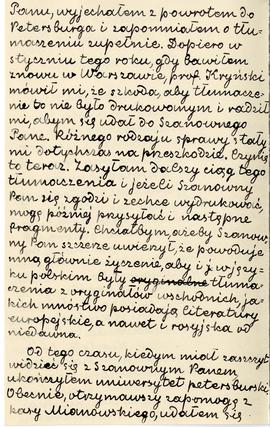 Panu, wyjechałem z powrotem do
Petersburga i zapomniałem o tłu-
maczeniu zupełnie. Dopiero w
styczniu tego roku, gdy bawiłem
znowu w Warszawie, prof. Kryński
mówił mi, że szkoda, aby tłumacze-
nie to nie było drukowanem i radził
mi, abym się udał do Szanownego
Pana. Różnego rodzaju sprawy stały
mi dotychczas na przeszkodzie. Czynię
to teraz. Zasyłam dalszy ciąg tego
tłumaczenia i jeżeli Szanowny
Pan się zgodzi i zechce wydrukować,
mogę później przysyłać i następne
fragmenty. Chciałbym, ażeby Szanow-
ny Pan szczerze uwierzył, że powoduje
mną głównie życzenie, aby i w języ-
ku polskim były oryginalne tłuma-
czenia z oryginałów wschodnich, ja-
kich mnóstwo posiadają literatury
europejskie, a nawet i rosyjska od
niedawna.
Od tego czasu, kiedym miał zaszczyt
widzieć się z Szanownym Panem,
ukończyłem uniwersytet petersburski.
Obecnie, otrzymawszy zapomogę z
kasy Mianowskiego, udałem się